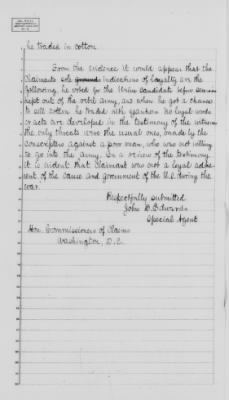 he traded in cotton
From the evidence it would appear that the
Claimants sole grounds indications of loyalty are the
following, he voted for the Union Candidate before
kept out of the army, and when he got a chance
to sell cotton he traded with yankees. No loyal words
or acts are developed in the testimony of the witness
the only threats were the usual ones, made by the
conscripters against a poor man, who was not willing
to go into the army. In a review of the testimony
it is evident that Claimant was not a loyal adhe-
rent of the cause and government of the U.S. during the
war.
Respectfully submitted
John D. Edwards
Special Agent
Hon. Commissioners of Claims
Washington, D.C.